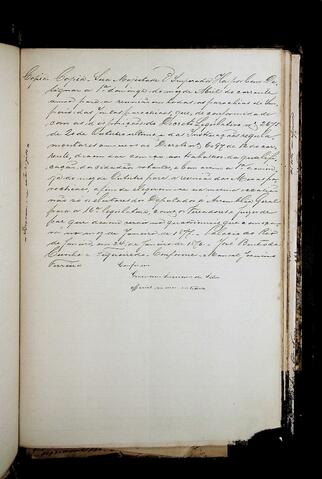 Copia Copia. Sua Magestade O Imperador Ha por bem De
signar o 1º domingo do mez de Abril do corrente
anno para a reunião em todas as parochias do Im
perio das Juntas parochiaes, que, de conformidade
com as disposições do Decreto Legislativo nº 2675
de 20 de Outubro ultimo e das Instrucções regula
mentares annexas ao Decreto nº 6097 de 12 do cor
rente, devem dar começo aos trabalhos da qualifi
cação dos cidadãos votantes, e bem assim o 1º domin
go do mez de Outubro para a reunião das Mesas pa
rochiaes, a fim de elegerem-se na mesma occasião
não só os eleitores de Deputados á Assemblea Geral
para a 16ª Legislatura, como os Vereadores e juizes de
paz que devem servir no quatriennio que começa
rá no mez de Janeiro de 1877. Palacio do Rio
de Janeiro em 24 de Janeiro de 1876. José Bento da
Cunha e Figueiredo. Conforme. Manoel
Conforme